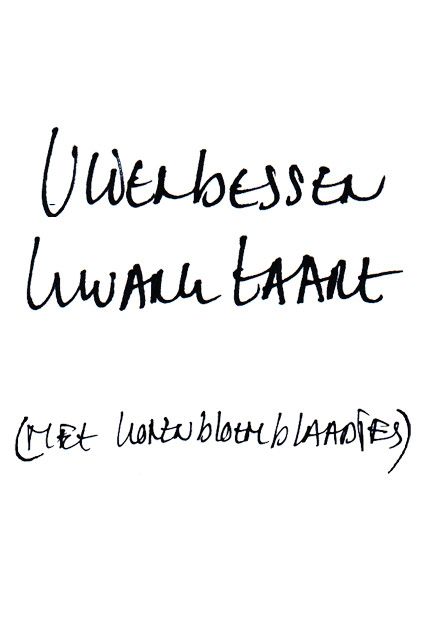 VLIERBESSEN
KWARK TAART
(MET KORENBLOEMBLAADJES)